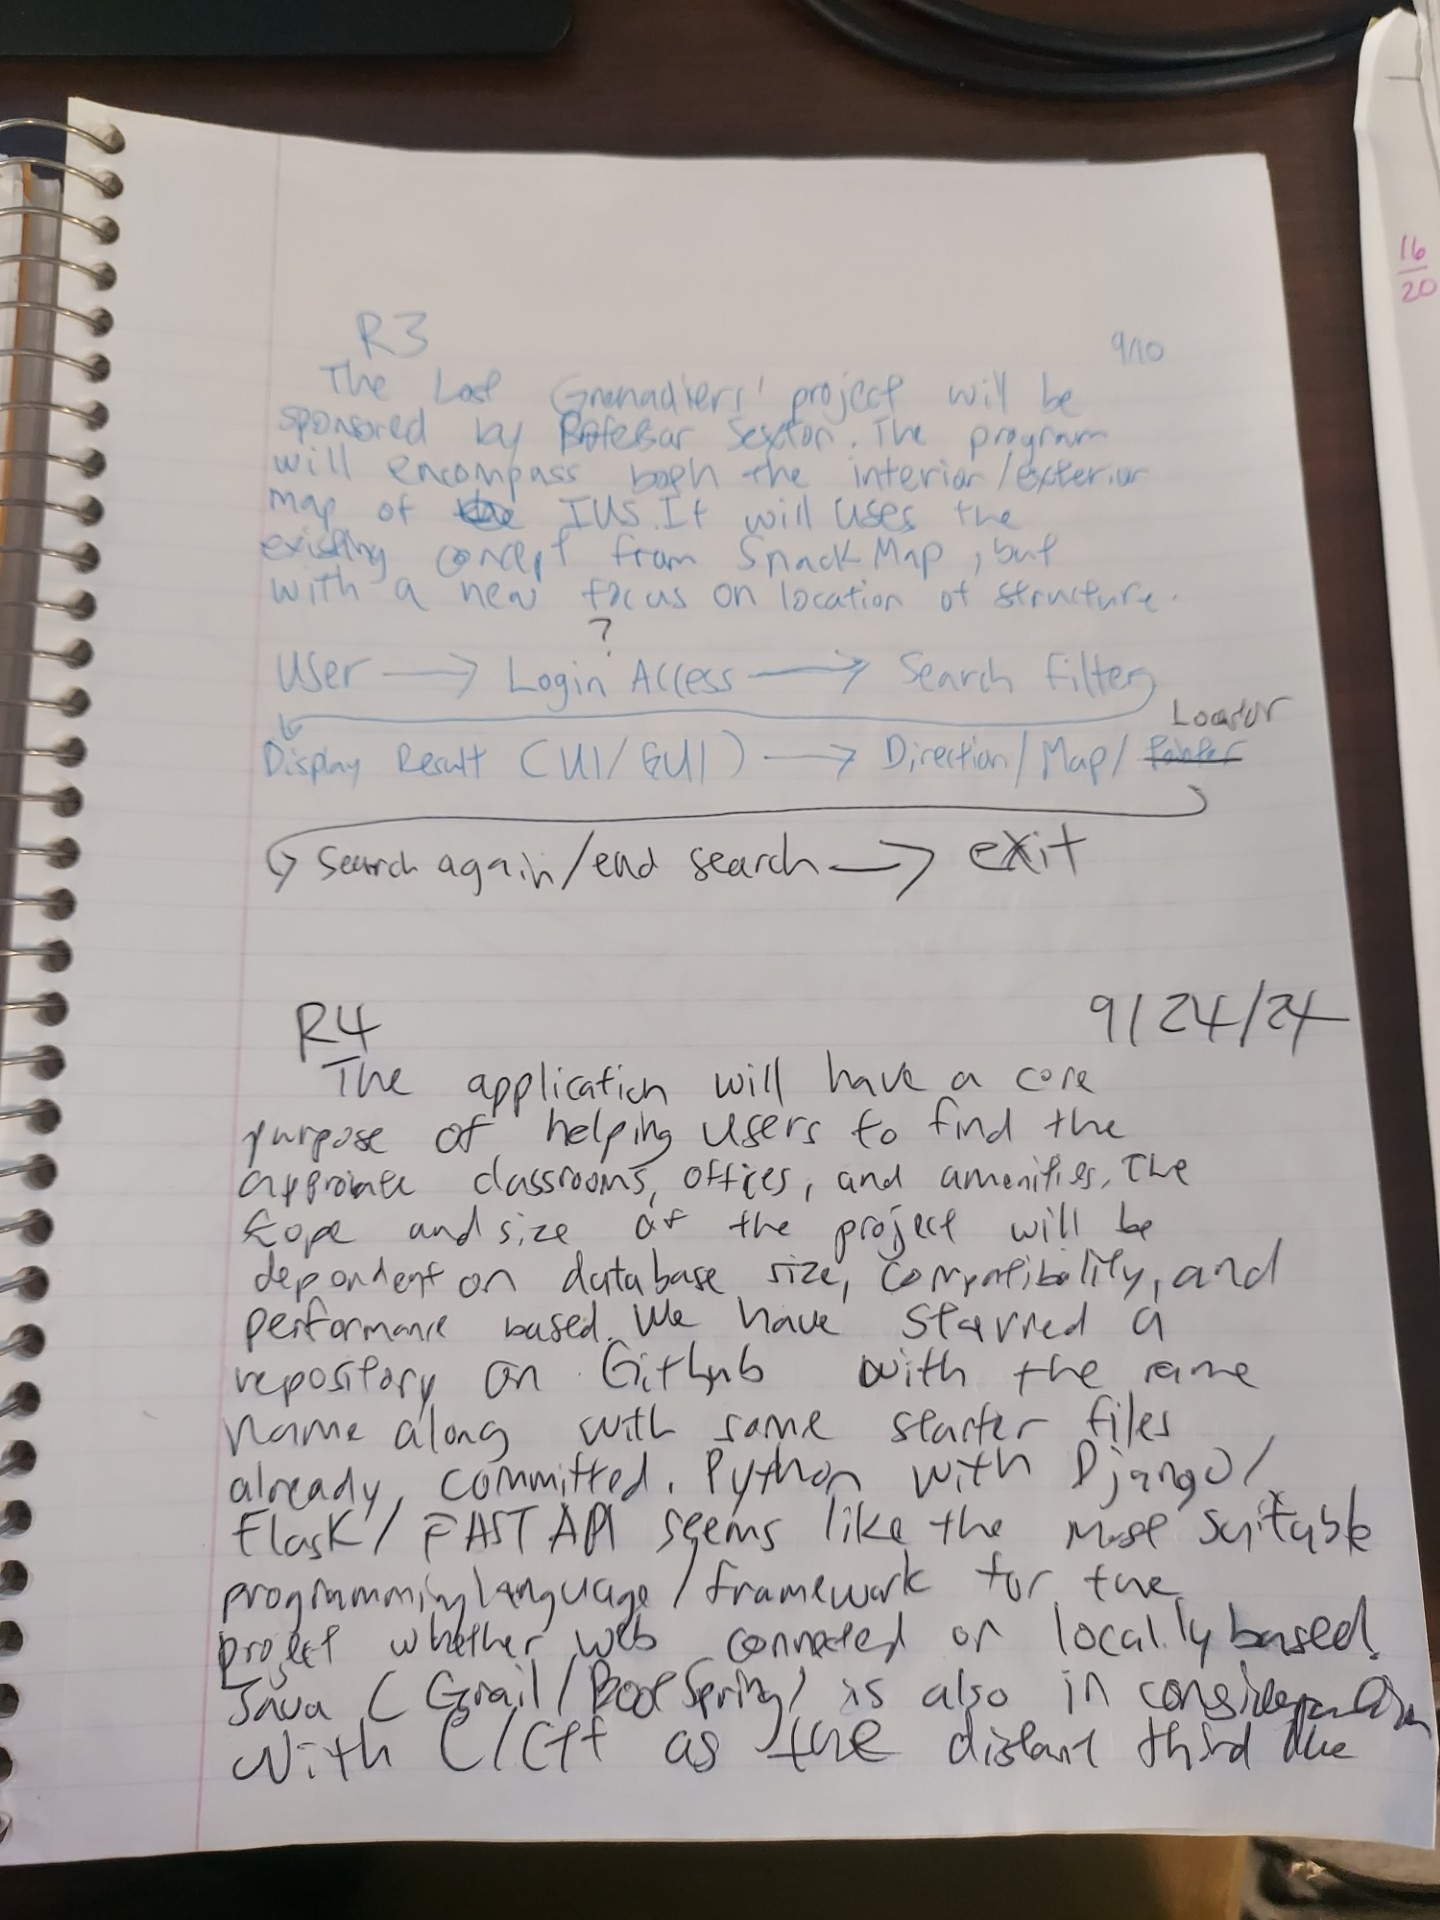 R3
9/10
The Last Grenadiers' project will be
sponsored by Sexton. The program
will encompass both the interior/exterior
map of IUS. It will uses the
existing concept from Snack Map, but
with a new focus on location of structure.
?
User → Login Access → Search Filter
Locator
Display Result (UI/GUI) → Direction/Map/ Pointer
Search again/end search → exit
R4
9/24/24
The application will have a core
purpose of helping users to find the
classrooms, offices, and amenities. The
and size of the project will be
dependent on database size, compatibility, and
performance based. We have starred a
repository on Github with the same
name along with some starter files
already committed. Python with Django/
Flask/ FAST API seems like the most suitable
programming language/framework for the
project whether web connected or locally based.
Java (Grail/Boot Spring) is also in consideration
with C/C++ as the distant third due
16
20